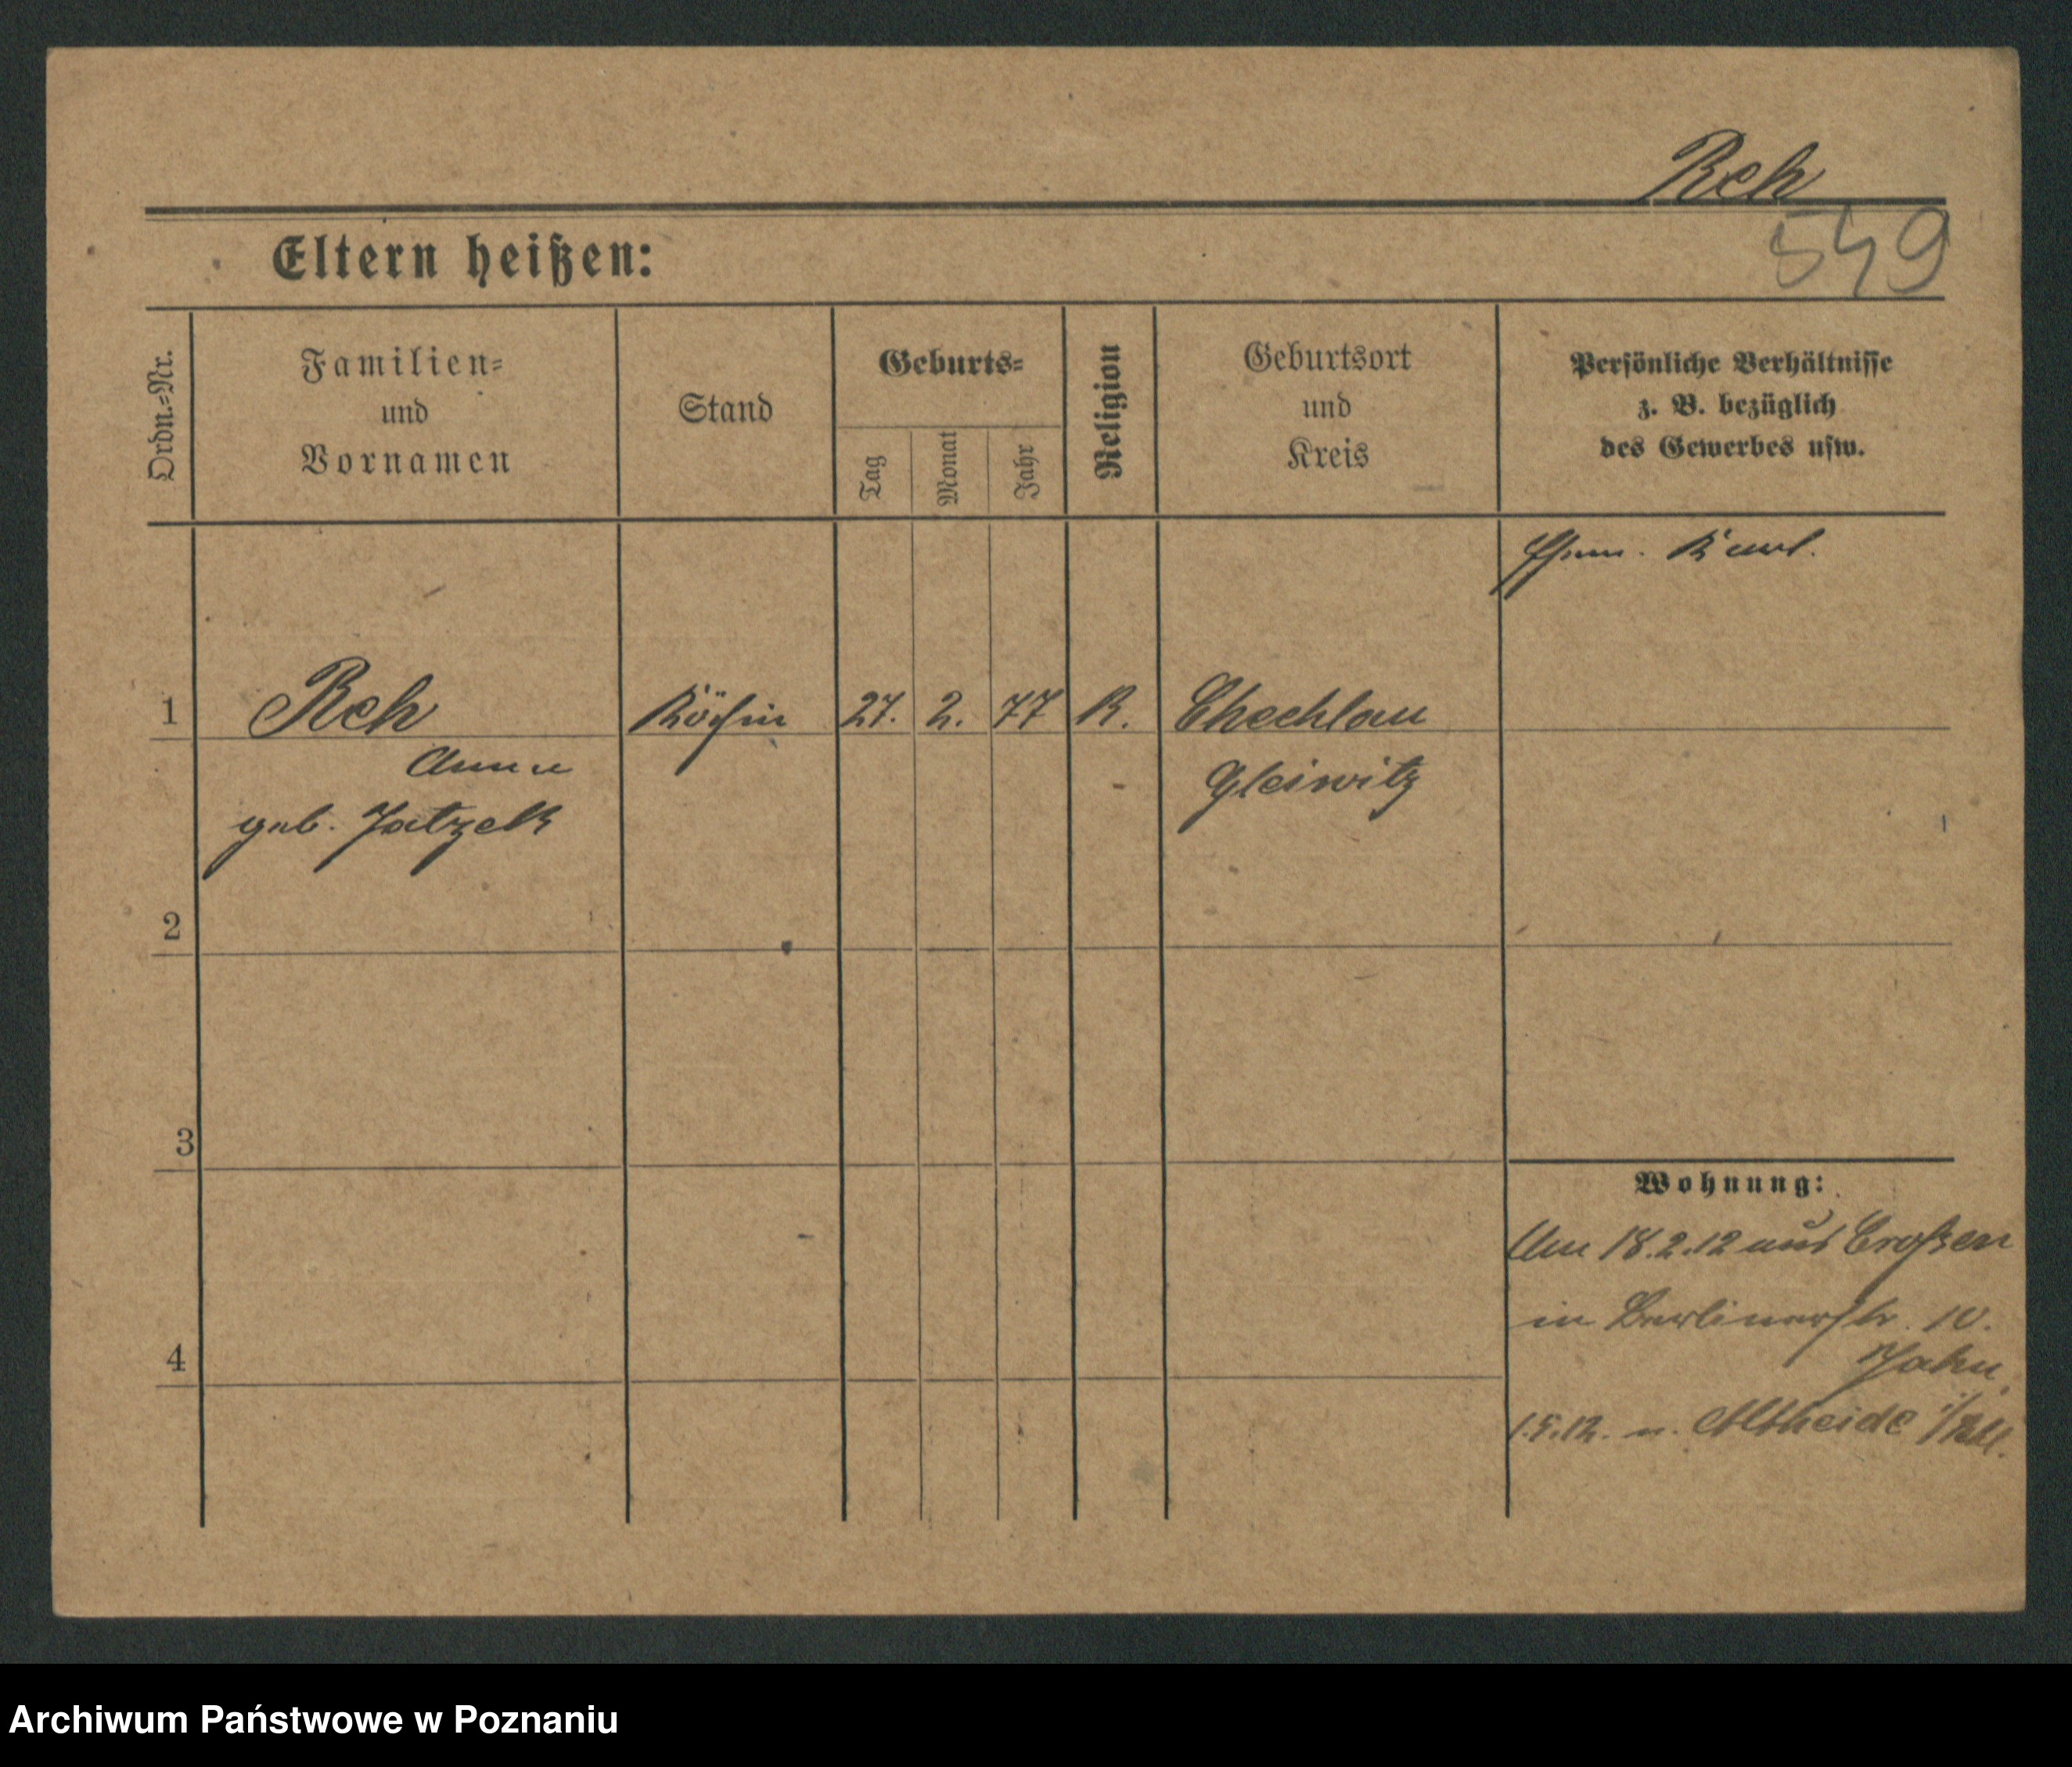 Reh
549
Eltern heißen:
Ordn.-Nr.
Familien-
und
Vornamen
Stand
Geburts-
Tag
Monat
Jahr
Religion
Geburtsort
und
Kreis
Persönliche Verhältnisse
z. B. bezüglich
des Gewerbes usw.
Ehem. Karl.
1 Reh Köchin 27. 2. 77 K. Chechlau
Anna Gleiwitz
geb. Jatzek
2
3
Wohnung:
Am 18.2.12 aus Croßen
in Berlinerstr. 10.
Jahn.
4
1.5.12. n. Altheide
Archiwum Państwowe w Poznaniu